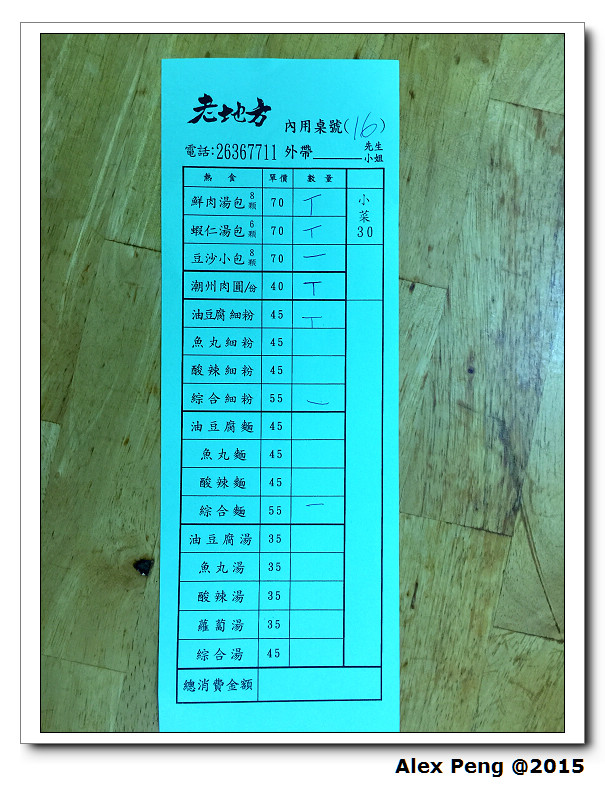 老地方
內用桌號(16)
電話:26367711 外帶______先生 小姐
熱食 單價 數量
鮮肉湯包8顆 70 丅 小菜30
蝦仁湯包6顆 70 丅
豆沙小包8顆 70 一
潮州肉圓/份 40 丅
油豆腐細粉 45 丅
魚丸細粉 45
酸辣細粉 45
綜合細粉 55 一
油豆腐麵 45
魚丸麵 45
酸辣麵 45
綜合麵 55 一
油豆腐湯 35
魚丸湯 35
酸辣湯 35
蘿蔔湯 35
綜合湯 45
總消費金額
Alex Peng @2015